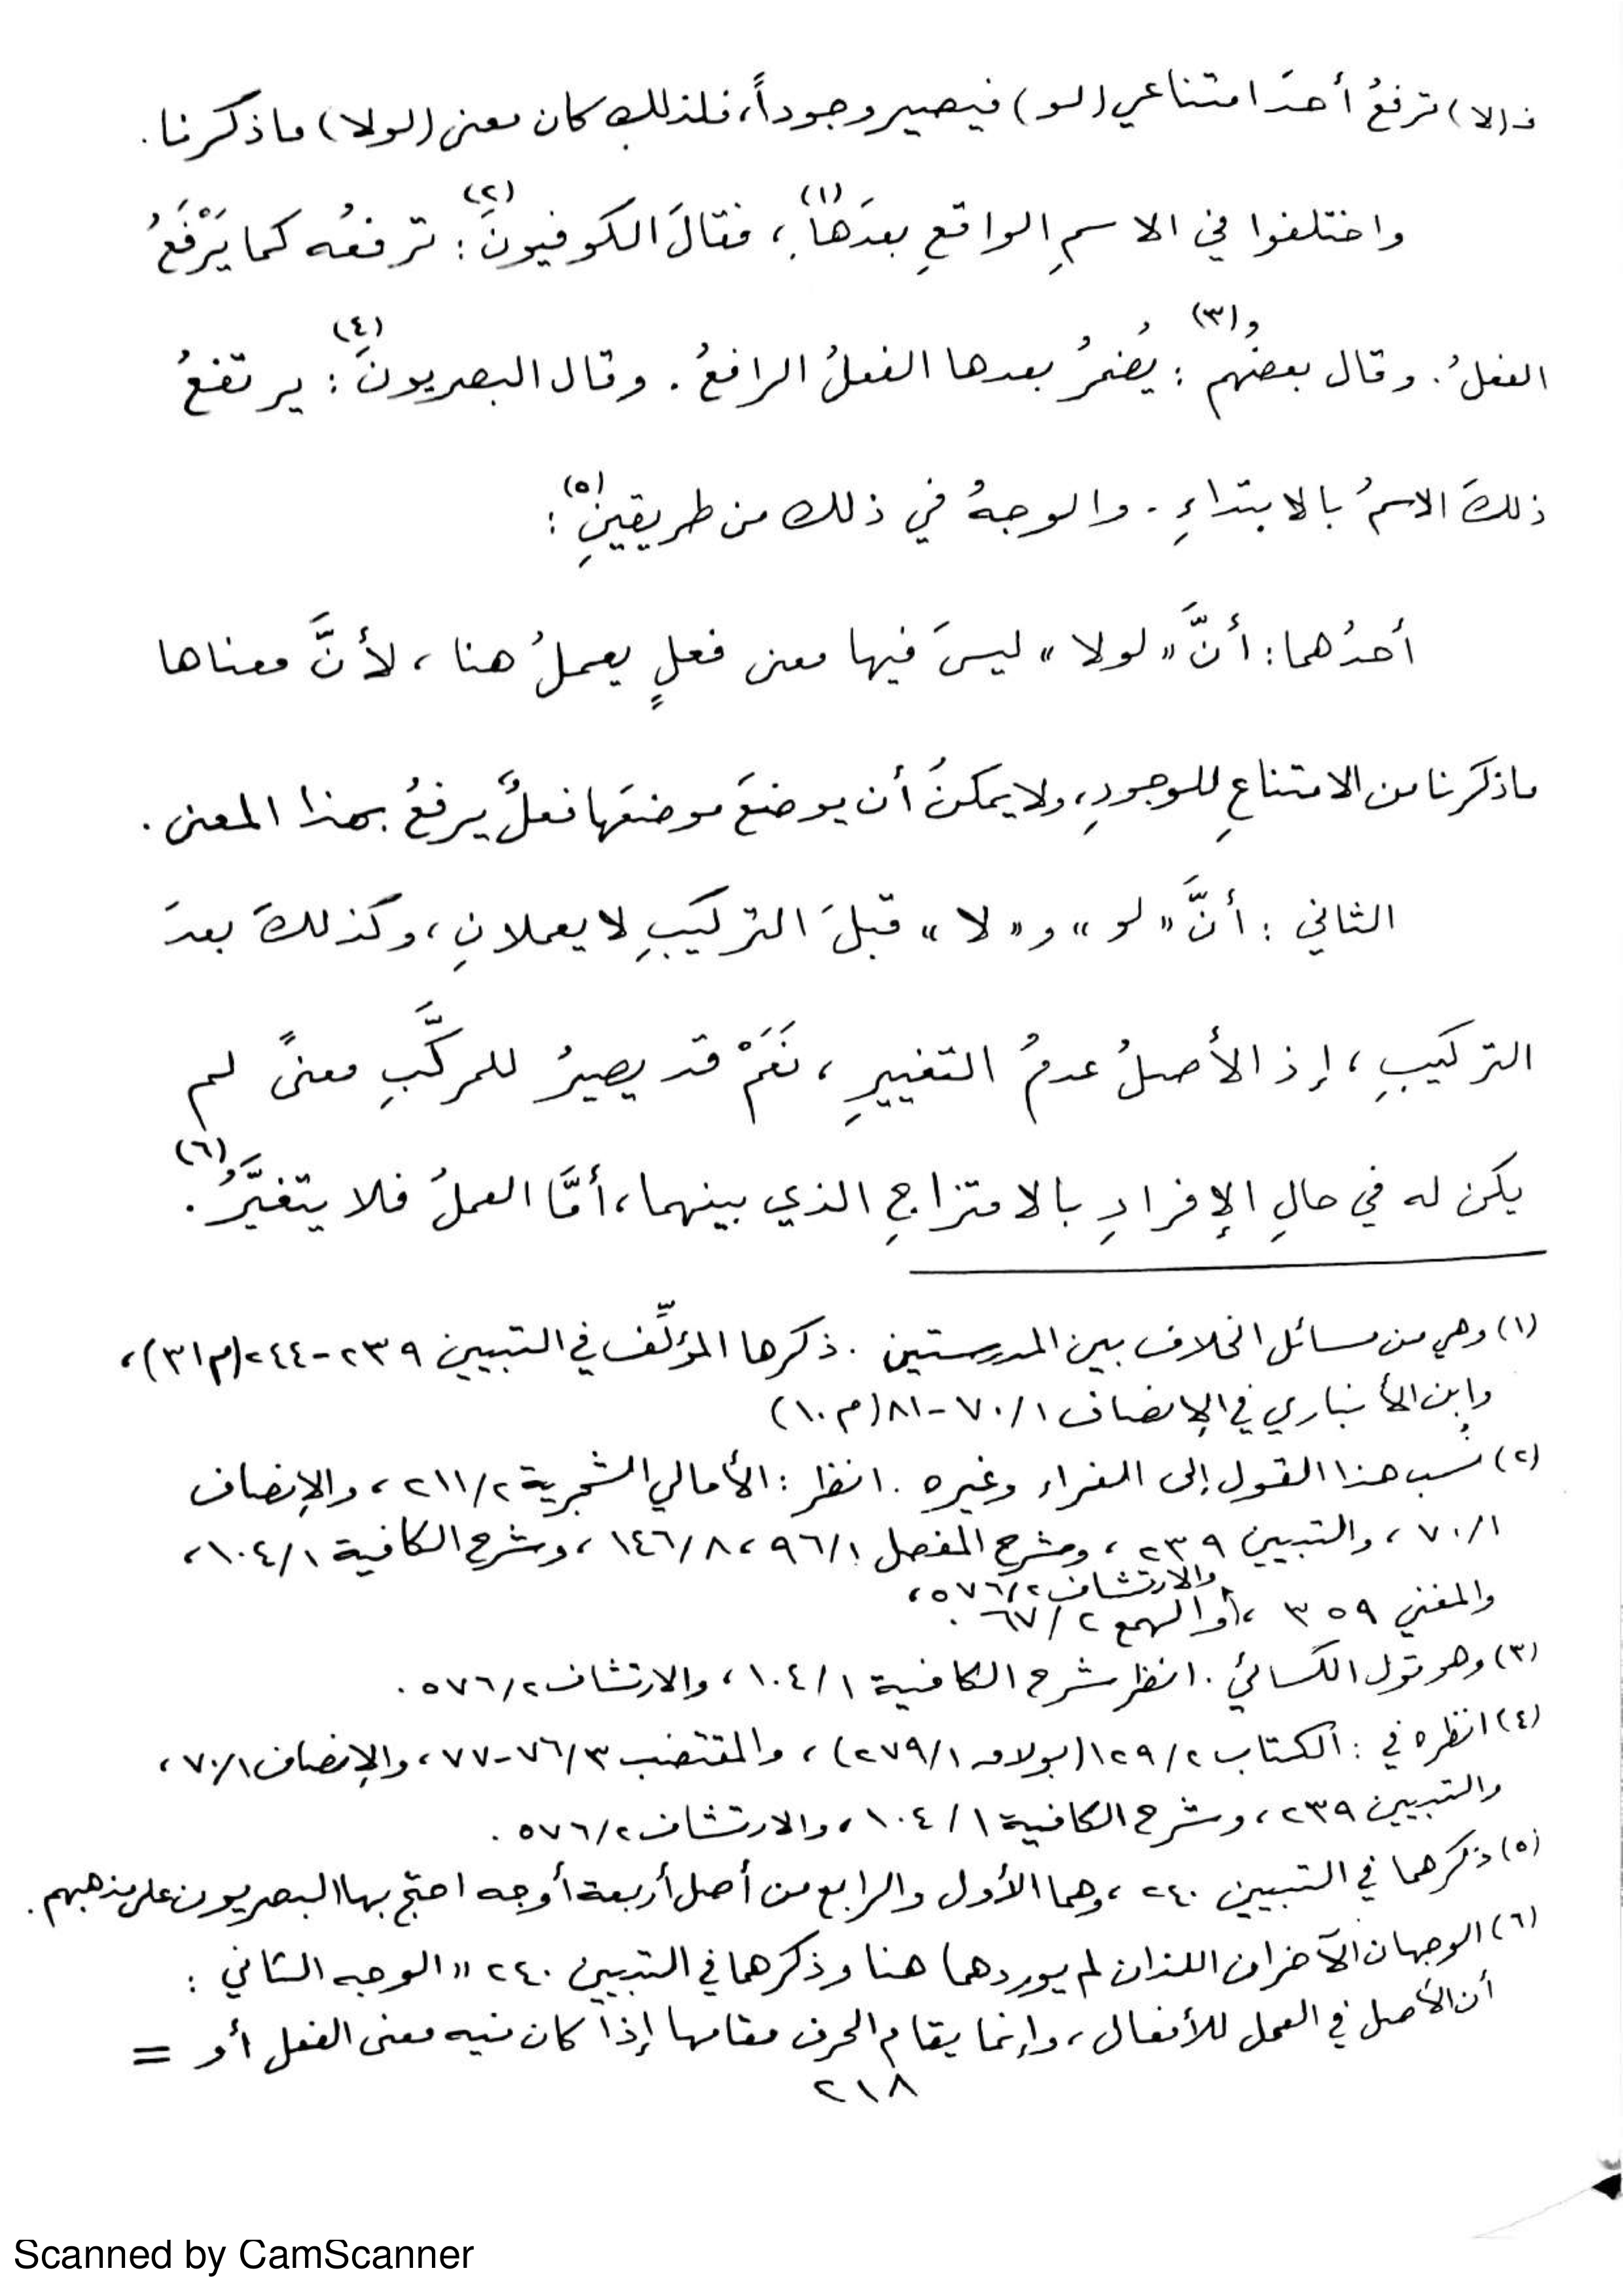 فـ(لا) ترفعُ أحدَ امتناعي (لو) فيصير وجوداً، فلذلك كان معنى (لولا) ما ذكرنا.
واختلفوا في الاسمِ الواقعِ بعدَها(١)، فقالَ الكوفيونَ(٢): ترفعُه كما يَرْفَعُ
الفعلُ. وقال بعضُهم(٣): يُضمرُ بعدها الفعلُ الرافعُ. وقال البصريونَ(٤): يرتفعُ
ذلكَ الاسمُ بالابتداءِ. والوجهُ في ذلك من طريقينِ(٥):
أحدُهما: أنَّ «لولا» ليسَ فيها معنى فعلٍ يعملُ هنا، لأنَّ معناها
ما ذكرنا من الامتناعِ للوجودِ، ولا يمكنُ أن يوضعَ موضعَها فعلٌ يرفعُ بهذا المعنى.
الثاني: أنَّ «لو» و«لا» قبلَ التركيبِ لا يعملانِ، وكذلكَ بعدَ
التركيبِ، إذ الأصلُ عدمُ التغييرِ، نَعَمْ قد يصيرُ للمركَّبِ معنىً لم
يكن له في حالِ الإفرادِ بالامتزاجِ الذي بينهما، أمَّا العملُ فلا يتغيَّرُ(٦).
(١) وهي من مسائل الخلاف بين المدرستين. ذكرها المؤلِّف في التبيين ٢٣٩-٢٤٤ (م٣١)،
وابن الأنباري في الإنصاف ١/٧٠-٨١ (م١٠)
(٢) نُسب هذا القول إلى الفراء وغيره. انظر: الأمالي الشجرية ٢/٢١١، والإنصاف
١/٧٠، والتبيين ٢٣٩، وشرح المفصل ١/٩٦، ٨/١٤٦، وشرح الكافية ١/١٠٤،
والمغني ٣٥٩، والارتشاف ٢/٥٧٦، والهمع ٢/٦٧.
(٣) وهو قول الكسائي. انظر شرح الكافية ١/١٠٤، والارتشاف ٢/٥٧٦.
(٤) انظره في: الكتاب ٢/١٢٩ (بولاق ١/٢٧٩)، والمقتضب ٣/٧٦-٧٧، والإنصاف ١/٧٠،
والتبيين ٢٣٩، وشرح الكافية ١/١٠٤، والارتشاف ٢/٥٧٦.
(٥) ذكرهما في التبيين ٢٤٠، وهما الأول والرابع من أصل أربعة أوجه احتج بها البصريون على مذهبهم.
(٦) الوجهان الآخران اللذان لم يوردهما هنا وذكرهما في التبيين ٢٤٠ «الوجه الثاني:
أن الأصل في العمل للأفعال، وإنما يقام الحرف مقامها إذا كان فيه معنى الفعل أو =
٢١٨
Scanned by CamScanner